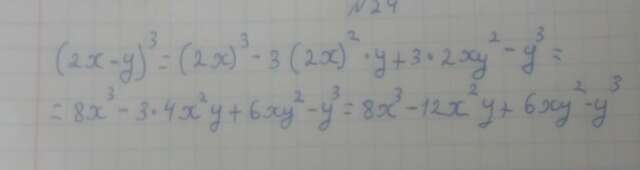 N24
(2x-y)³=(2x)³-3(2x)²·y+3·2xy²-y³=
=8x³-3·4x²y+6xy²-y³=8x³-12x²y+6xy²-y³